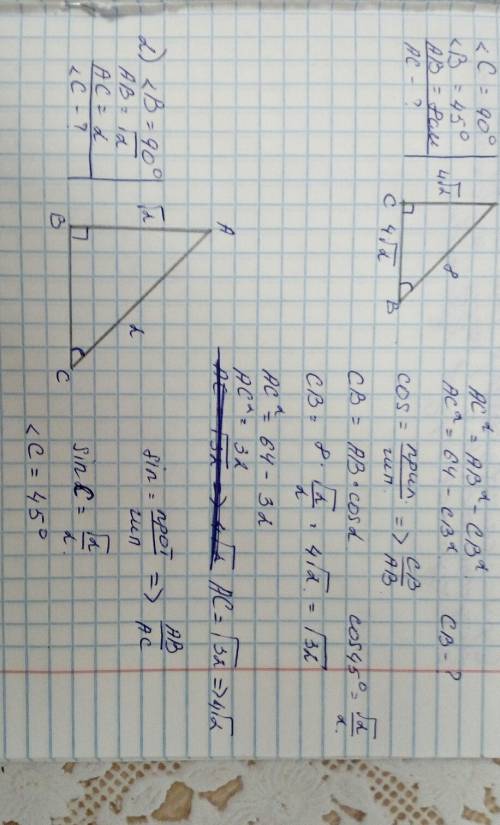 <C = 90°
<B = 45°
AB = 8см
AC - ?
4√2
8
C
4√2
B
AC² = AB² - CB²
AC² = 64 - CB²
CB - ?
cos = прил. / гип. => CB / AB
CB = AB · cosα
cos45° = √2 / 2.
CB = 8 · √2 / 2 = 4√2 = √32
AC² = 64 - 32
AC² = 32
AC = √32 => 4√2
AC = √32 => 4√2
2) <B = 90°
AB = √2
AC = 2
<C - ?
A
√2
2
B
C
sin = прот / гип => AB / AC
sin C = √2 / 2.
<C = 45°